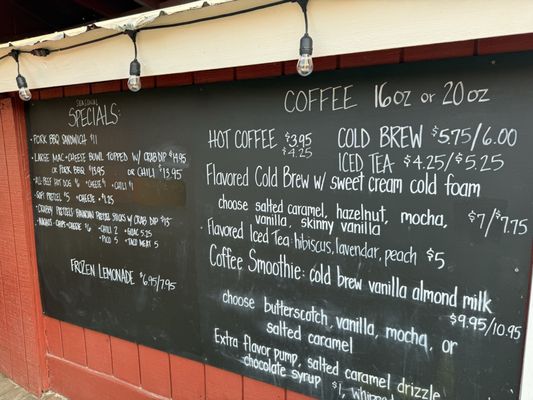 SEASONAL
SPECIALS:
• PORK BBQ SANDWICH $11
• LARGE MAC+CHEESE BOWL TOPPED W/ CRAB DIP $14.95
OR PORK BBQ $13.95 OR CHILI $13.95
• ALL BEEF HOT DOG $6 +CHEESE $1 +CHILI $1
• SOFT PRETZEL $5 +CHEESE $1.25
• CRABBY PRETZELS: BAVARIAN PRETZEL STICKS W/ CRAB DIP $15
• NACHOS: CHIPS+CHEESE $6 +CHILI 2 +GUAC 5.25
+PICO 5 +TACO MEAT 5
FROZEN LEMONADE $6.95/7.95
COFFEE 16oz OR 20oz
HOT COFFEE $3.95
$4.25
COLD BREW $5.75/6.00
ICED TEA $4.25/$5.25
Flavored Cold Brew w/ sweet cream cold foam
choose salted caramel, hazelnut, mocha,
vanilla, skinny vanilla $7/$7.75
Flavored Iced Tea: hibiscus, lavendar, peach $5
Coffee Smoothie: cold brew vanilla almond milk
$9.95/10.95
choose butterscotch, vanilla, mocha, or
salted caramel
Extra flavor pump, salted caramel drizzle
chocolate syrup $1, whipped